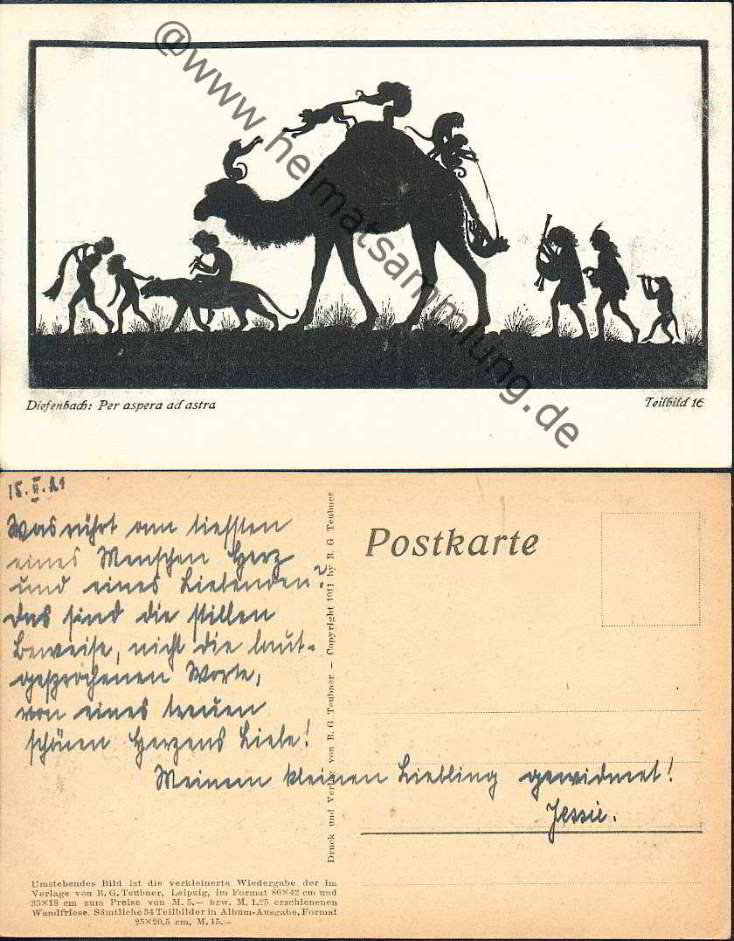 @www.heimatsammlung.de
Diefenbach: Per aspera ad astra
Teilbild 16
15. II. 21
Was rührt am tiefsten
eines Menschen Herz
und eines Liebenden?
Das sind die stillen
Beweise, nicht die laut-
gesprochenen Worte,
von eines treuen
schönen Herzens Liebe!
Meinem kleinen Liebling gewidmet!
Jessie.
Druck und Verlag von B. G. Teubner. – Copyright 1911 by B. G. Teubner
Postkarte
Umstehendes Bild ist die verkleinerte Wiedergabe der im
Verlage von B. G. Teubner, Leipzig, im Format 80×42 cm und
35×18 cm zum Preise von M. 5.— bzw. M. 1.25 erschienenen
Wandfriese. Sämtliche 34 Teilbilder in Album-Ausgabe, Format
25×20,5 cm, M. 15.—